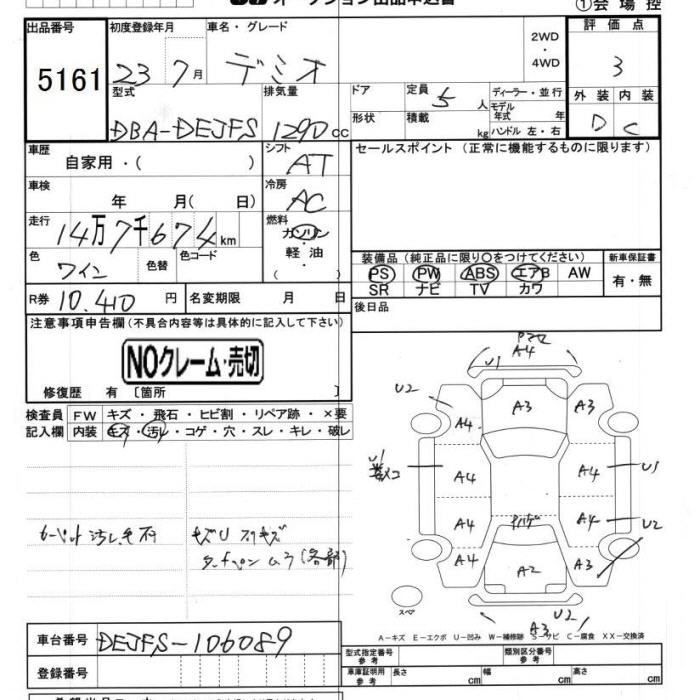 オークション出品申込書
①会場控
出品番号 初度登録年月 車名・グレード 2WD・4WD 評価点
5161 23 7月 デミオ 3
型式 排気量 ドア 定員 5人 ディーラー・並行 外装 内装
DBA-DEJFS 1290cc 形状 積載 kg モデル年式 年 ハンドル 左・右 D C
車歴 シフト セールスポイント（正常に機能するものに限ります）
自家用・( ) AT
車検 年 月( 日) 冷房 AC
走行 14万7千674km 燃料 ガソリン・軽油・( )
色 ワイン 色替 色コード
装備品（純正品に限り○をつけてください） 新車保証書
PS PW ABS エアB AW 有・無
SR ナビ TV カワ
R券 10.410円 名変期限 月 日 後日品
注意事項申告欄（不具合内容等は具体的に記入して下さい）
NOクレーム・売切
修復歴 有〔箇所 〕
検査員記入欄 FW キズ・飛石・ヒビ割・リペア跡・×要
内装 キズ・汚れ・コゲ・穴・スレ・キレ・破レ
カーペット汚レ キズU
A4
U1
U2 A3 A3
A4
U1 A4 A4 U1
A4 A4 U2
A4 A2 A3
スペア
U2
A3
A－キズ E－エクボ U－凹み W－補修跡 S－サビ C－腐食 XX－交換済
車台番号 DEJFS-106089
登録番号
型式指定番号 参考 類別区分番号 参考
車庫証明用 参考 長さ cm 幅 cm 高さ cm